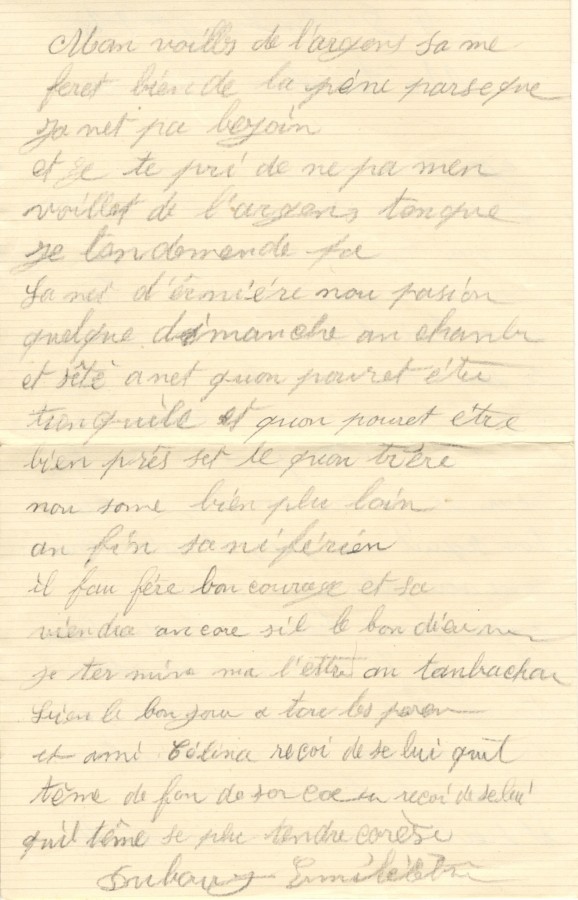 Man voilles de l'argens sa me
feret bien de la péni parseque
ja net pa besoin
et je te pri de ne pa men
voilles de l'argens tanque
je tan demende pa
La nes d'érniére nou pasion
quelque dimanche an chanbr
et sété a net quon pouret étre
tranquile et quon pouret étre
bien prés set te quon
nou some bien plu loin
an fin sa ni fé rién
il fau fére bon courage et sa
viendra ancore sil le bon dieu
je termine ma l'estre an tanbrachan
bien le bonjour a tou les paren
et ami Célina reçoi de se lui quit
téme de fon de son coe sa reçoi de selui
quil téme se plu tendre carése
Dubourg